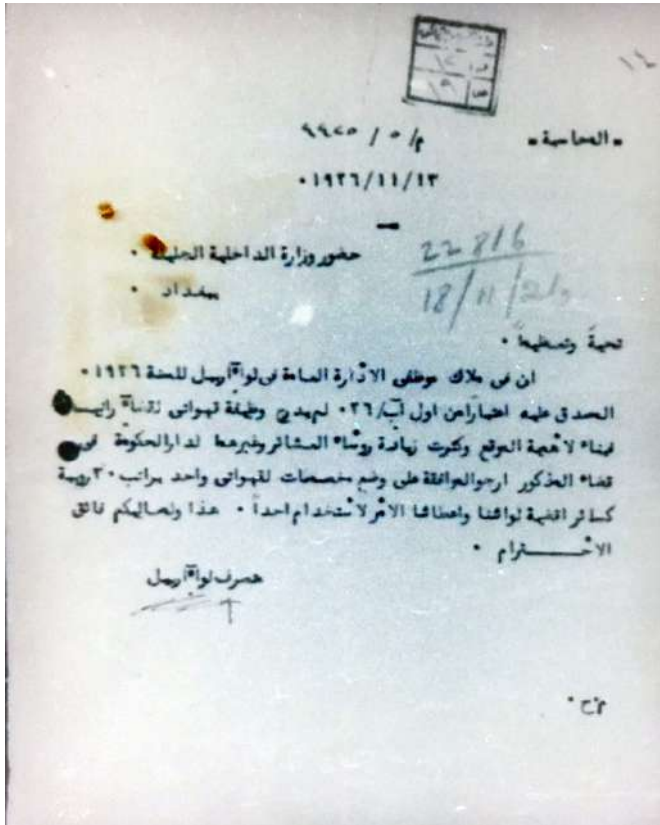 ١٤
- المحاسبة -
م/٥ / ٩٩٢٥
١٩٢٦/١١/١٣ ٠
22816
18/11/26
حضور وزارة الداخلية الجليلة ٠
بغداد ٠
تحية وتعظيماً ٠
ان في ملاك موظفي الادارة العامة في لواء اربيل للسنة ١٩٢٦ ٠
المصدق عليه اعتباراً من اول آب/٠٢٦ لم يدرج وظيفة قهواتي لقضاء رانية
فبناء لاهمية الموقع وكثرت زيادة روساء العشائر وغيرهما لدار الحكومة في
قضاء المذكور ارجو الموافقة على وضع مخصصات لقهواتي واحد براتب ٣٠ روبية
كسائر اقضية لوائنا واعطائنا الامر لاستخدام احداً ٠ هذا ولمعاليكم فائق
الاحـــــترام ٠
متصرف لواء اربيل
م٠ح ٠